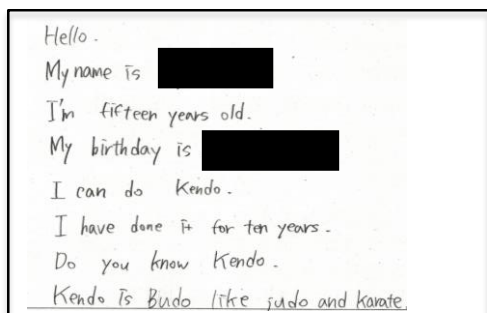 Hello.
My name is
I'm fifteen years old.
My birthday is
I can do Kendo.
I have done it for ten years.
Do you know Kendo.
Kendo is Budo like judo and karate